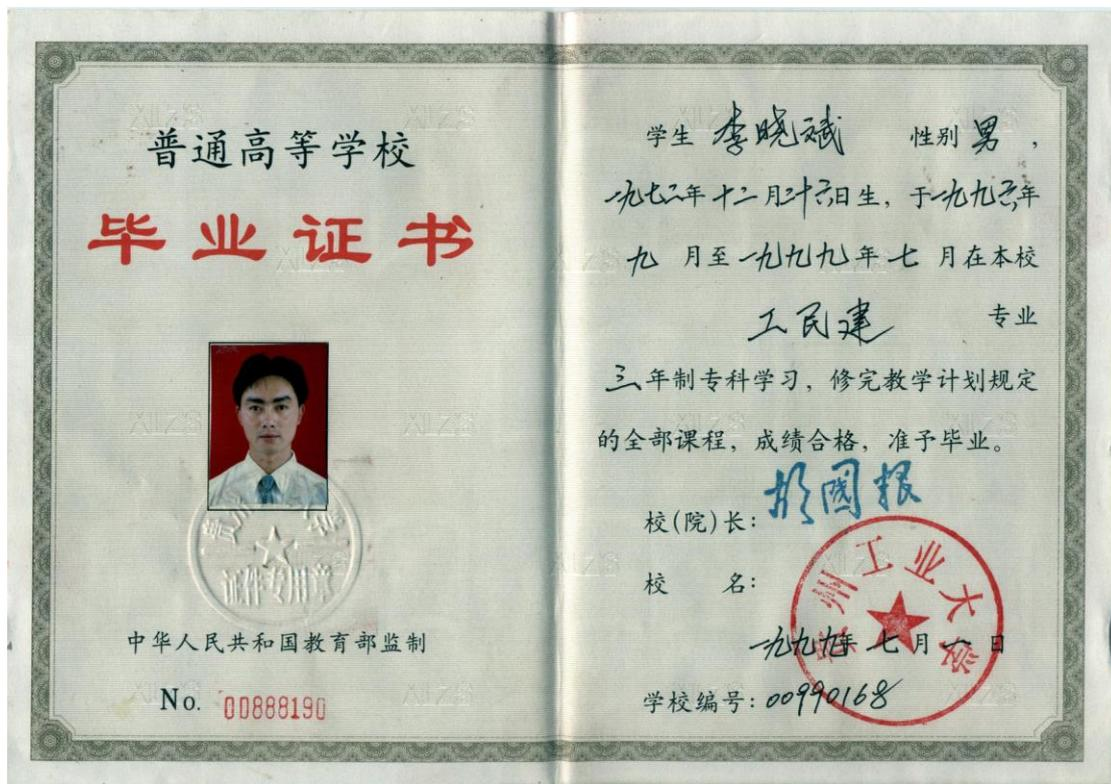 普通高等学校
毕业证书
证件专用章
中华人民共和国教育部监制
No. 00888190
学生 李晓斌 性别 男，
一九七二年十二月二十六日生，于一九九六年
九 月至一九九九年 七 月在本校
工民建 专业
三年制专科学习，修完教学计划规定
的全部课程，成绩合格，准予毕业。
校(院)长： 胡国根
校 名：
贵州工业大学
一九九九年 七 月 一 日
学校编号：00990168